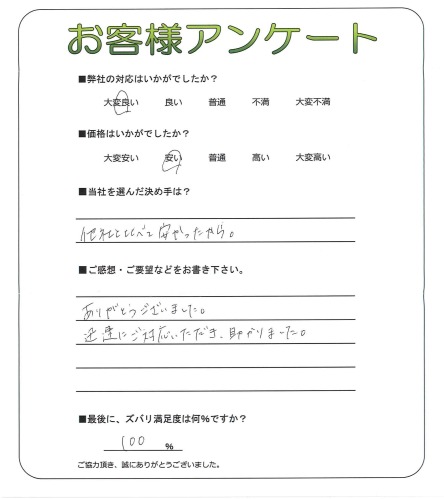 お客様アンケート
■弊社の対応はいかがでしたか？
大変良い　良い　普通　不満　大変不満
■価格はいかがでしたか？
大変安い　安い　普通　高い　大変高い
■当社を選んだ決め手は？
他社と比べて安かったから。
■ご感想・ご要望などをお書き下さい。
ありがとうございました。
迅速にご対応いただき、助かりました。
■最後に、ズバリ満足度は何％ですか？
100 %
ご協力頂き、誠にありがとうございました。